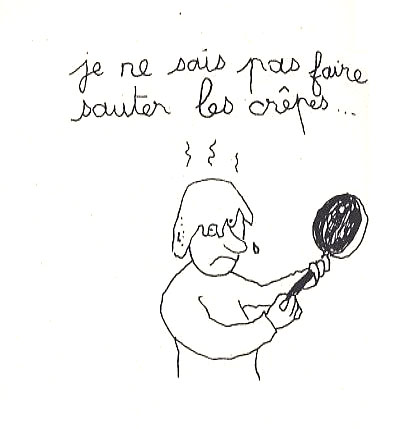 je ne sais pas faire
sauter les crêpes...